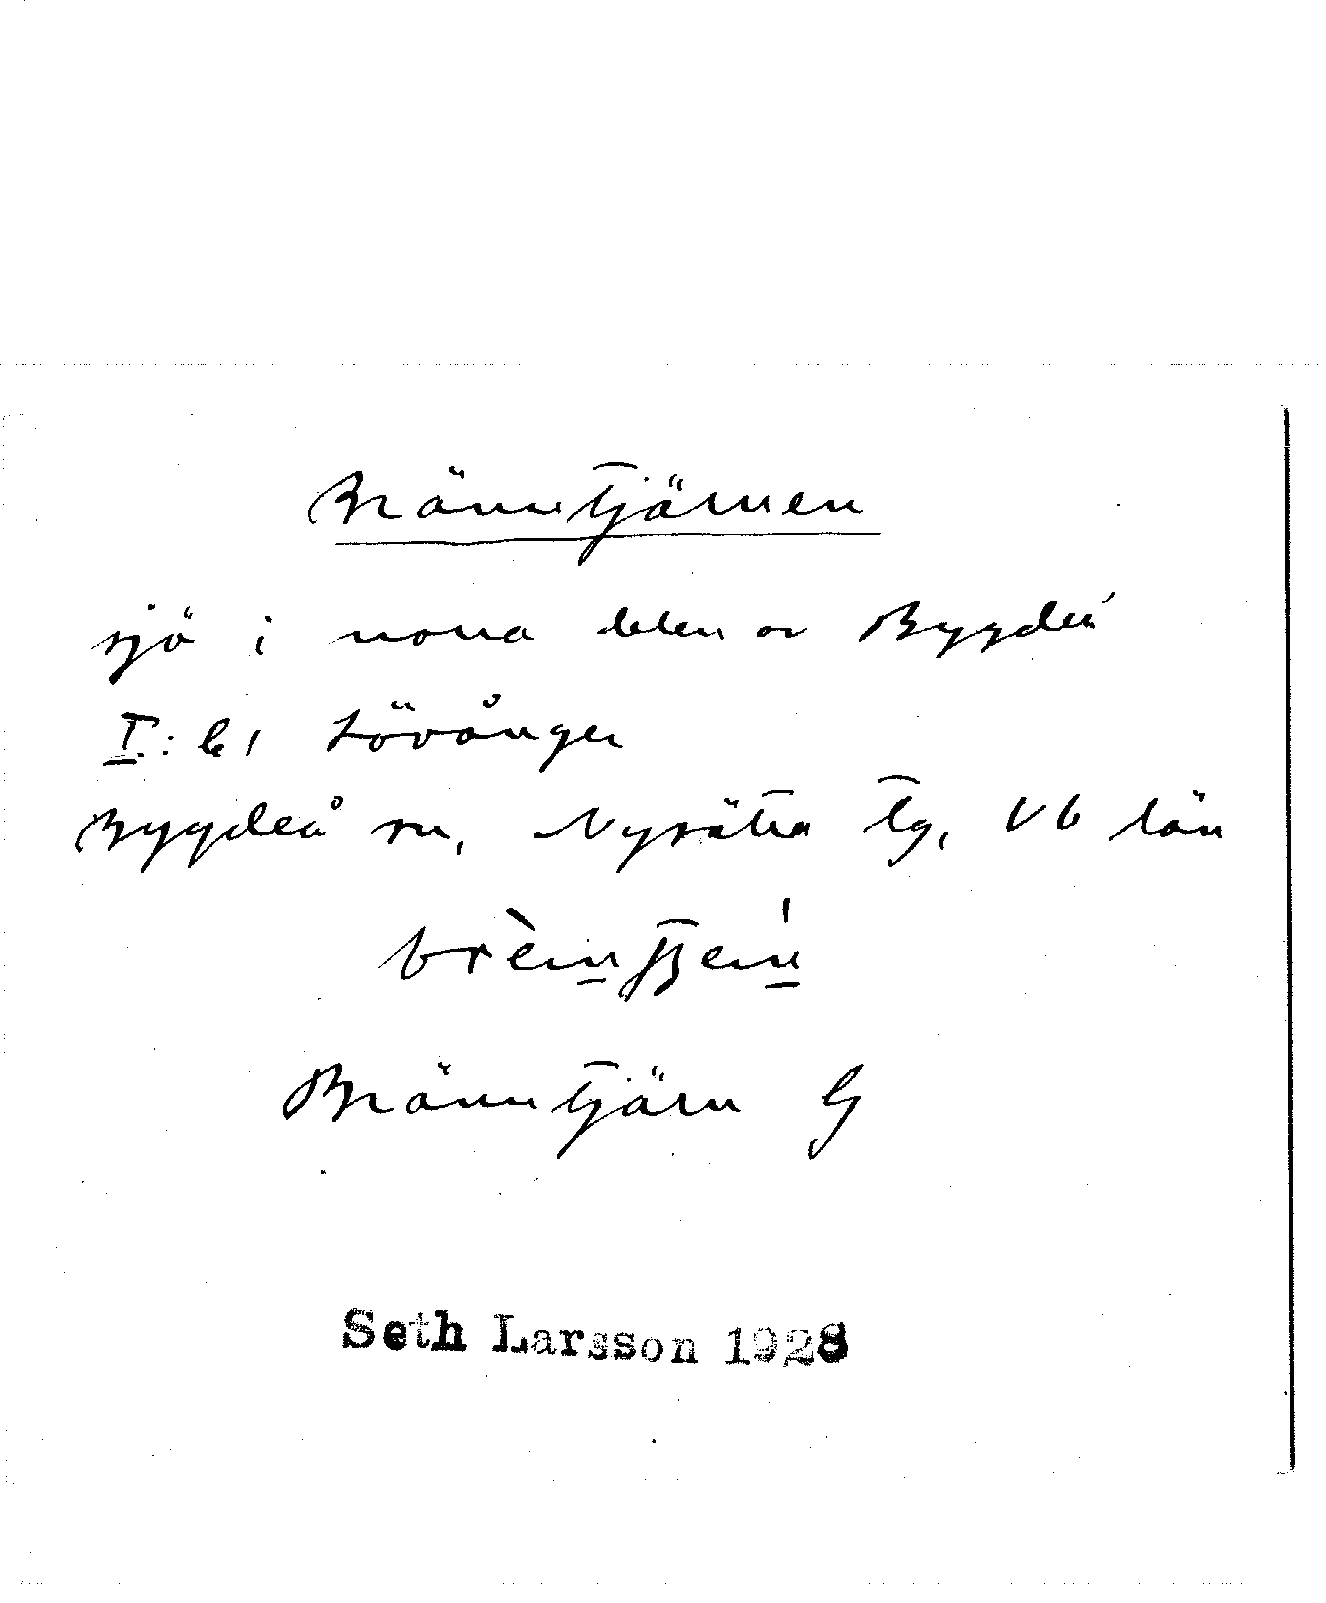 Bränntjärnen
sjö i norra delen av Bygdeå
I: b1 Lövånger
Bygdeå sn, Nysätra tg, Vb län
Bränntjärn G
Seth Larsson 1928